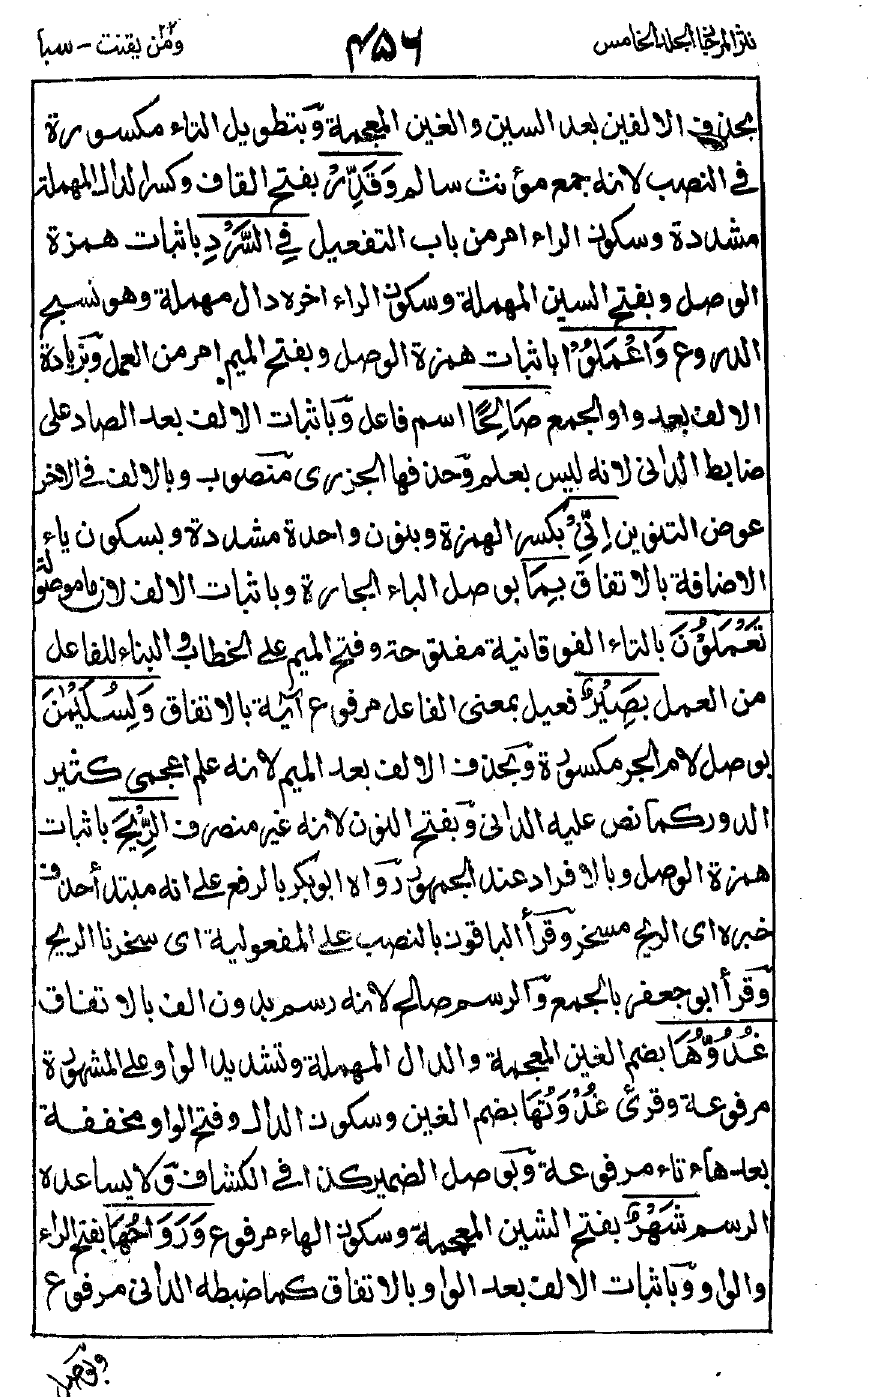 نثر المرجان المجلد الخامس
٤٥٦
ومن يقنت ٢٢ - سبا
بحذف الالفين بعد السين والغين المعجمة وبتطويل التاء مكسورة
في النصب لانه جمع مؤنث سالم وَقَدِّرْ بفتح القاف وكسر الدال المهملة
مشددة وسكون الراء امر من باب التفعيل فِي السَّرْدِ باثبات همزة
الوصل وبفتح السين المهملة وسكون الراء اخره دال مهملة وهو نسيج
الدروع وَاعْمَلُوْا باثبات همزة الوصل وبفتح الميم امر من العمل وبزيادة
الالف بعد واو الجمع صَالِحًا اسم فاعل وباثبات الالف بعد الصاد على
ضابط الداني لانه ليس بعلم وحذفها الجزري منصوب وبالالف في الاخر
عوض التنوين اِنِّيْ بكسر الهمزة وبنون واحدة مشددة وبسكون ياء
الاضافة بالاتفاق بِمَا بوصل الباء الجارة وباثبات الالف لان ما موصولة
تَعْمَلُوْنَ بالتاء الفوقانية مفتوحة وفتح الميم على الخطاب والبناء للفاعل
من العمل بَصِيْرٌ فعيل بمعنى الفاعل مرفوع آية بالاتفاق وَلِسُلَيْمٰنَ
بوصل لام الجر مكسورة وبحذف الالف بعد الميم لانه علم اعجمي كثير
الدور كما نص عليه الداني وبفتح النون لانه غير منصرف الرِّيْحَ باثبات
همزة الوصل وبالافراد عند الجمهور رواه ابوبكر بالرفع على انه مبتدأ حذف
خبره اى الريح مسخر وقرأ الباقون بالنصب على المفعولية اى سخرنا الريح
وقرأ ابو جعفر بالجمع والرسم صالح لانه رسم بدون الف بالاتفاق
غُدُوُّهَا بضم الغين المعجمة والدال المهملة وتشديد الواو على المشهورة
مرفوعة وقرئ غُدْوَتُهَا بضم الغين وسكون الدال وفتح الواو مخففة
بعدها تاء مرفوعة وبوصل الضمير كذا في الكشاف ولا يساعده
الرسم شَهْرٌ بفتح الشين المعجمة وسكون الهاء مرفوع وَرَوَاحُهَا بفتح الراء
والواو وباثبات الالف بعد الواو بالاتفاق كما ضبطه الداني مرفوع
وبوصل